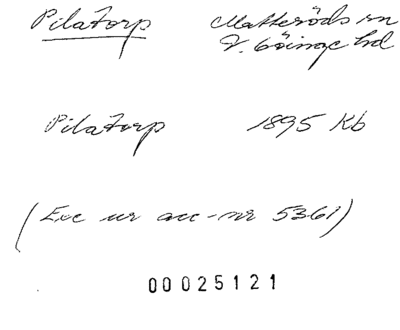 Pilatorp Matteröds sn
V. Göinge hd
Pilatorp 1895 Kb
(Exc ur acc-nr 5361)
00025121